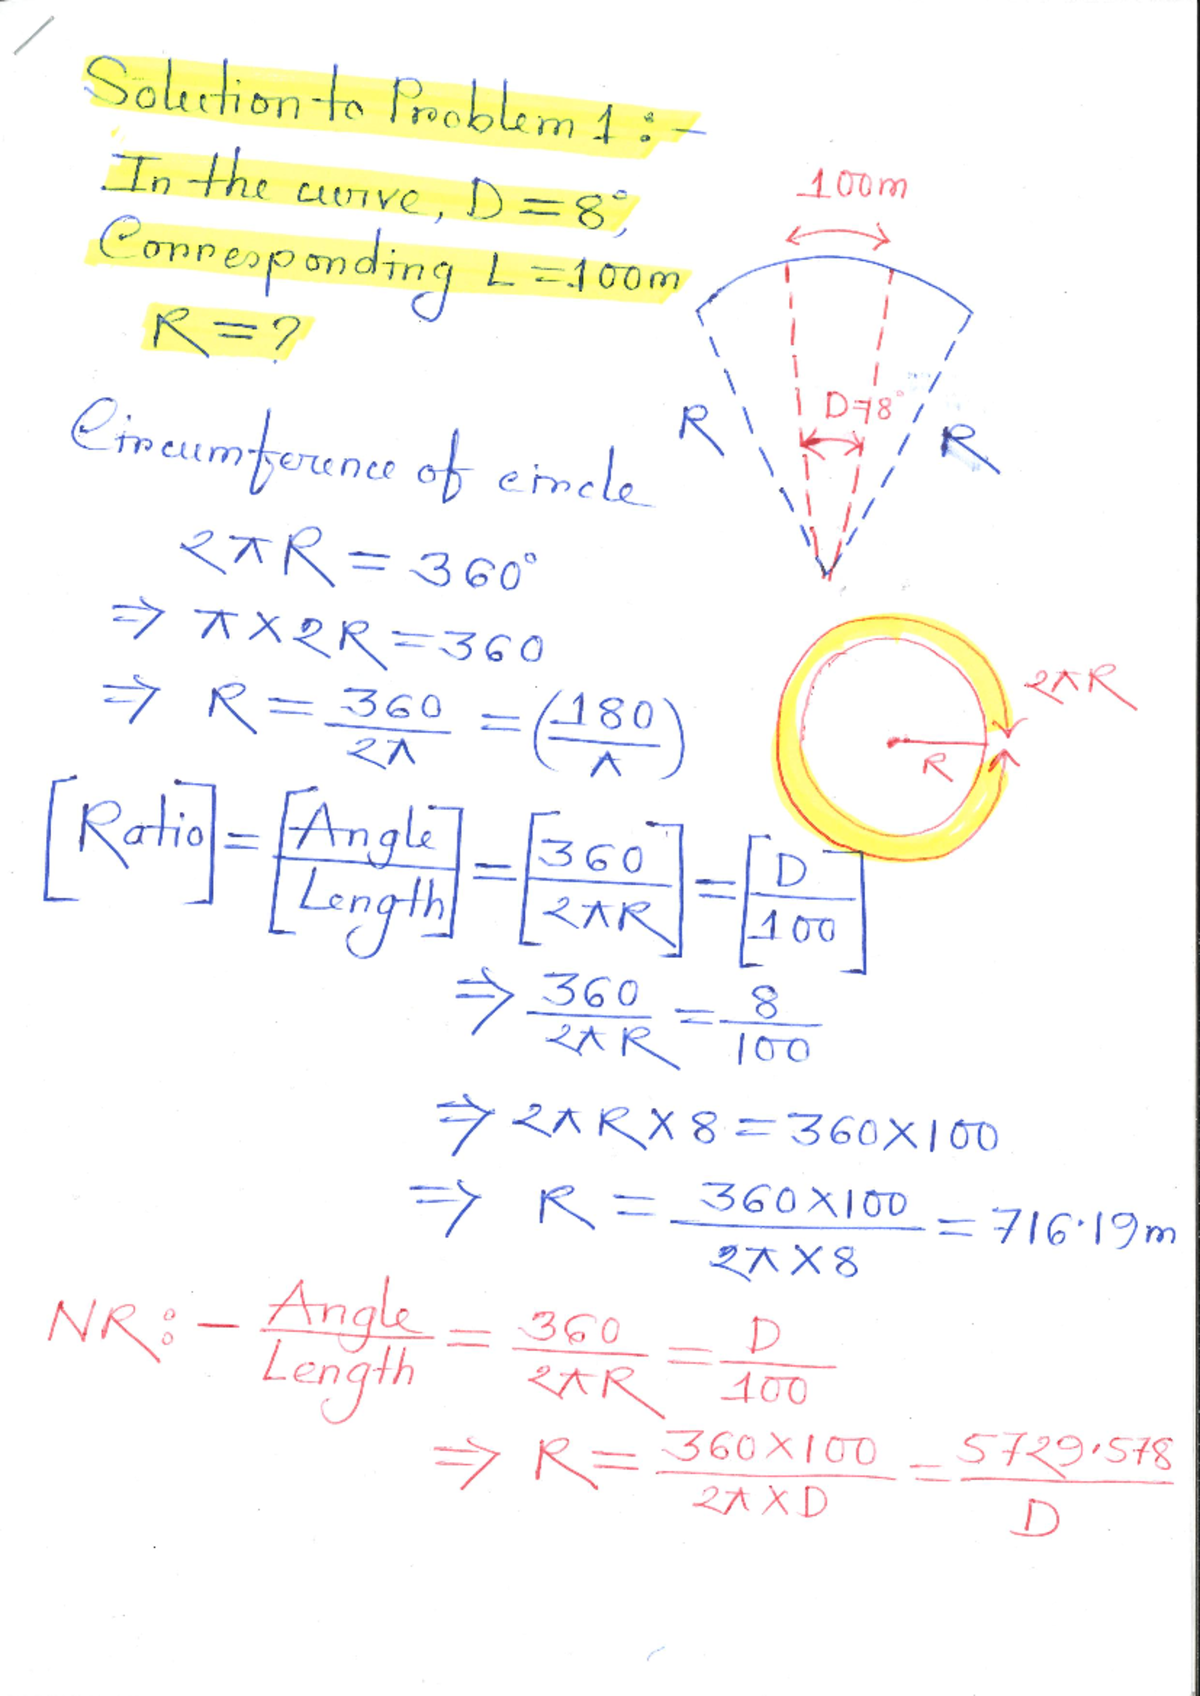 Solution to Problem 1:-
In the curve, D=8°,
Corresponding L=100m
R=?
100m
D=8°
R
R
Circumference of circle
2πR=360°
⇒ π×2R=360
⇒ R=360/2π=(180/π)
2πR
R
[Ratio]=[Angle/Length]=[360/2πR]=[D/100]
⇒ 360/2πR=8/100
⇒ 2πR×8=360×100
⇒ R=360×100/2π×8=716.19m
NR:- Angle/Length=360/2πR=D/100
⇒ R=360×100/2π×D=5729.578/D